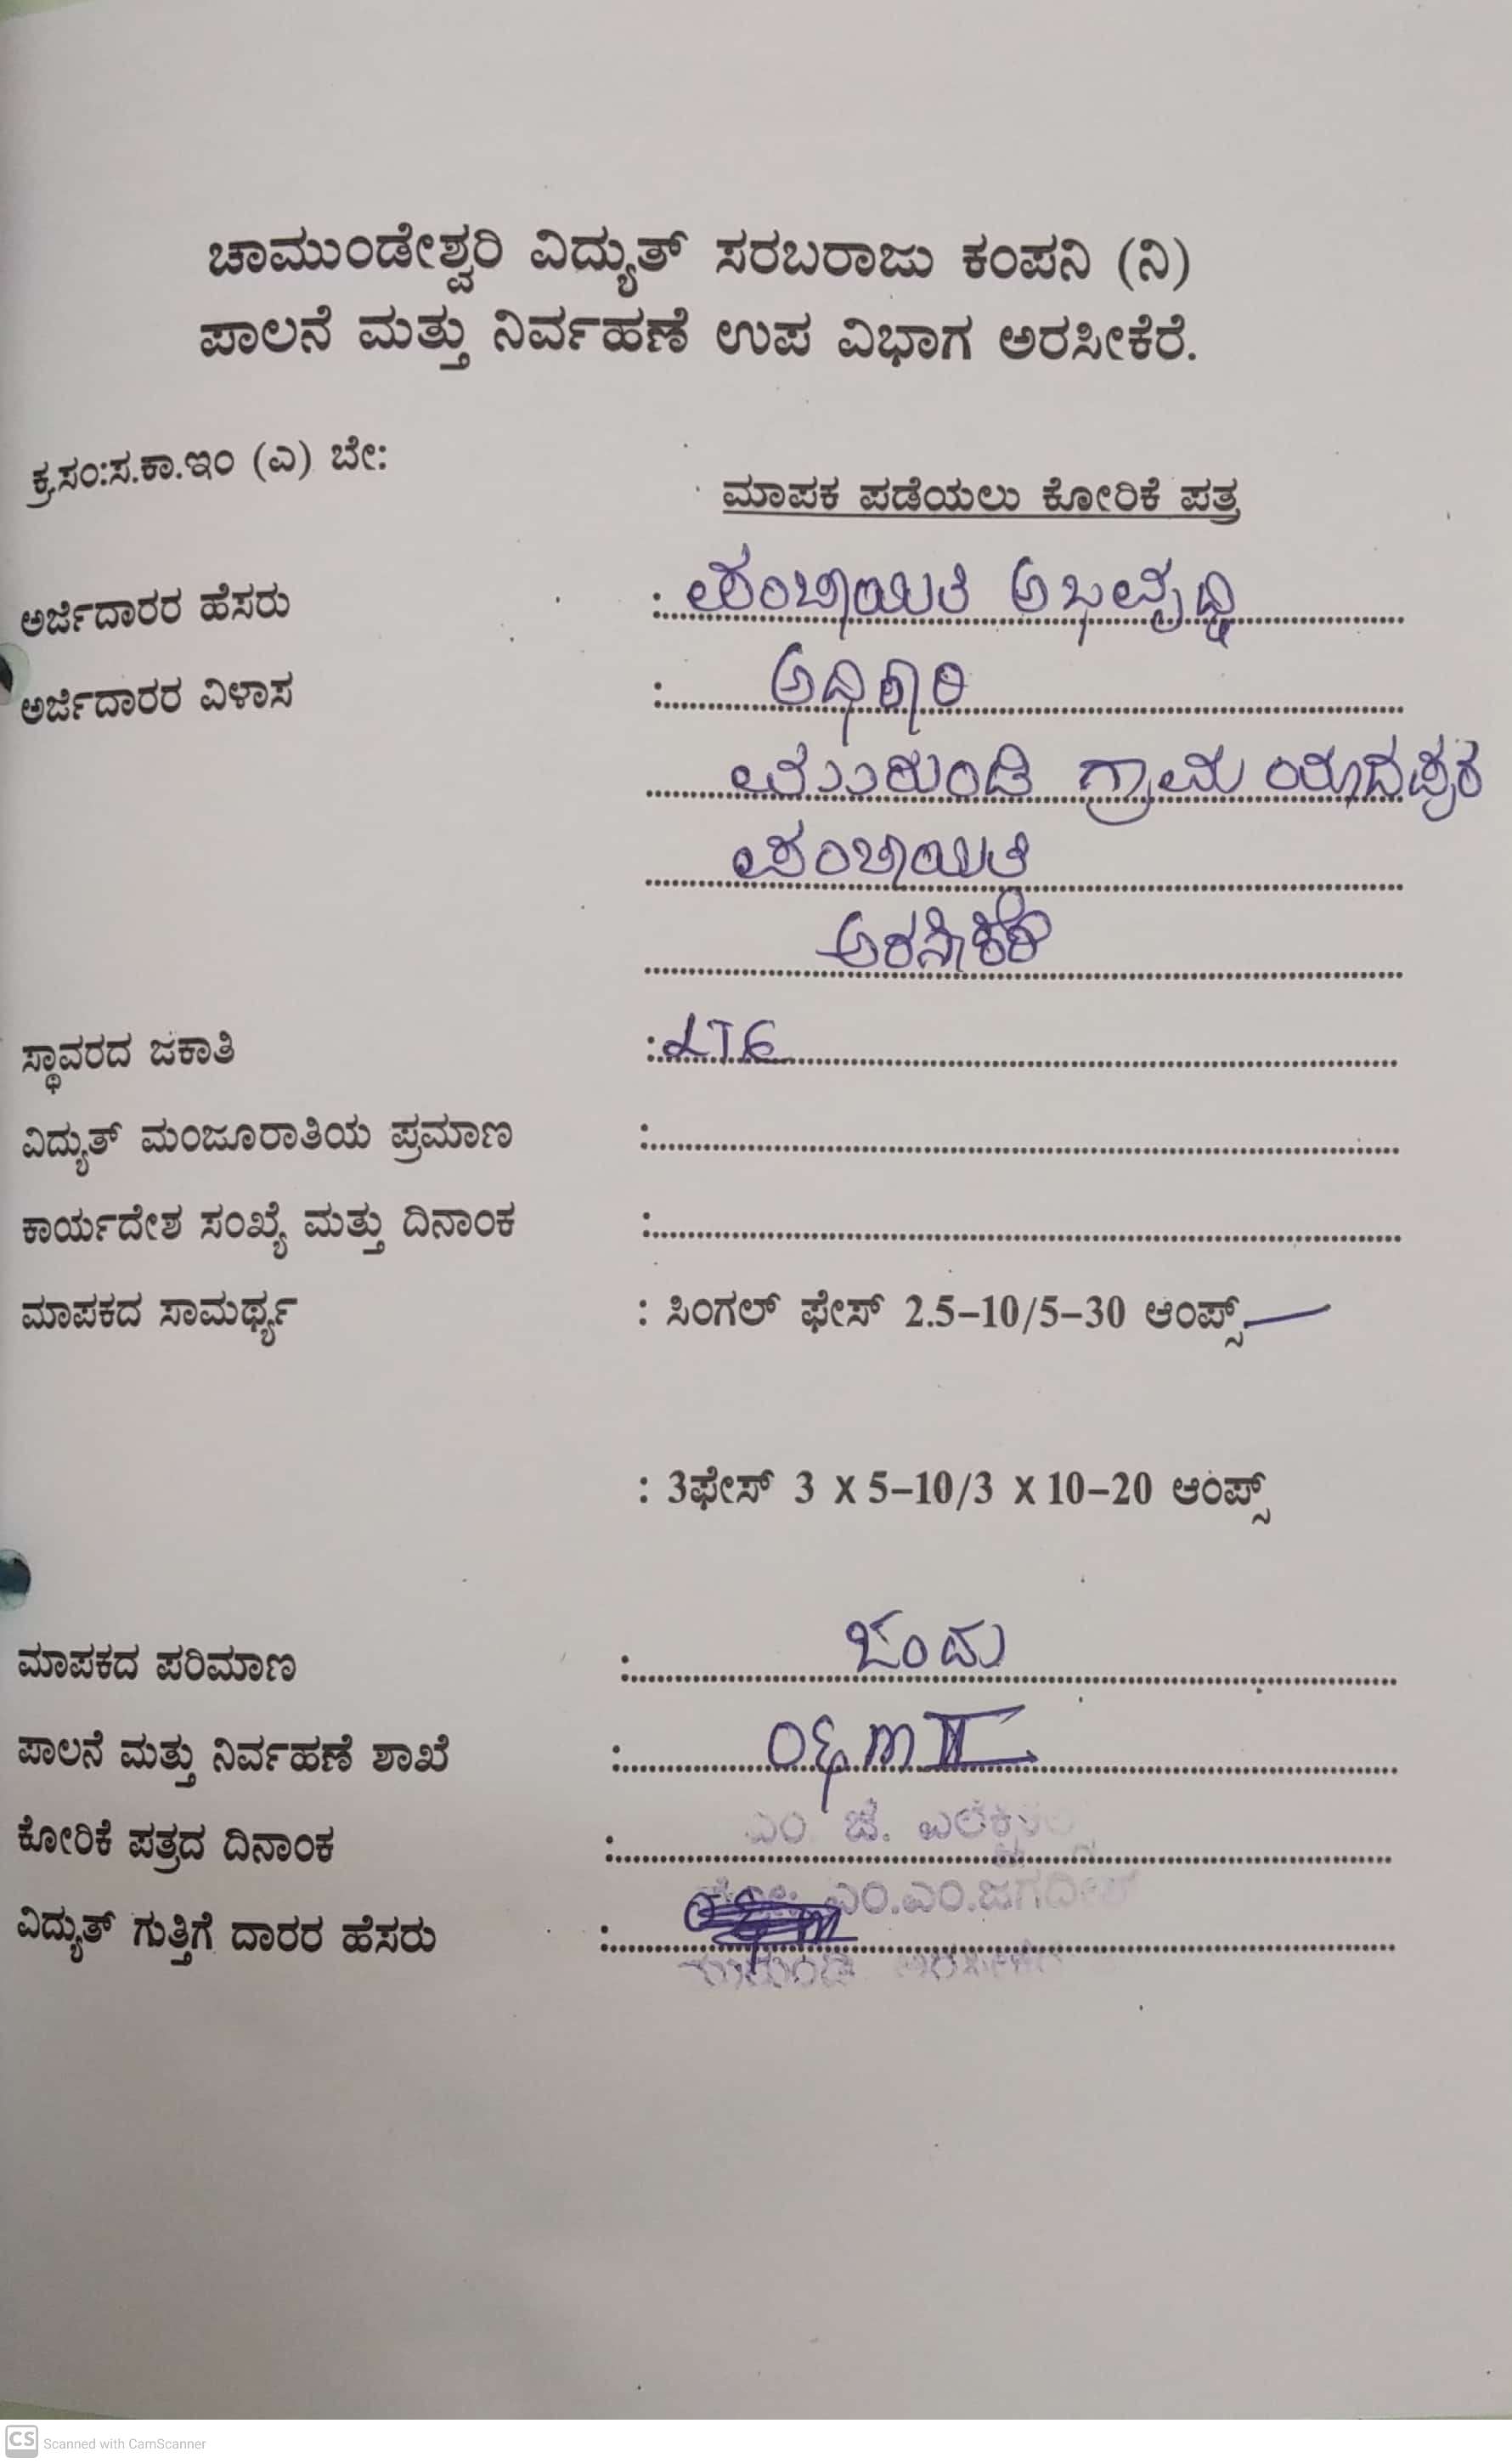 ಚಾಮುಂಡೇಶ್ವರಿ ವಿದ್ಯುತ್ ಸರಬರಾಜು ಕಂಪನಿ (ನಿ)
ಪಾಲನೆ ಮತ್ತು ನಿರ್ವಹಣೆ ಉಪ ವಿಭಾಗ ಅರಸೀಕೆರೆ.
ಕ್ರ.ಸಂ:ಸ.ಕಾ.ಇಂ (ಎ) ಬೇ:
ಮಾಪಕ ಪಡೆಯಲು ಕೋರಿಕೆ ಪತ್ರ
ಅರ್ಜಿದಾರರ ಹೆಸರು : ಪಂಚಾಯಿತಿ ಅಭಿವೃದ್ಧಿ
ಅರ್ಜಿದಾರರ ವಿಳಾಸ : ಅಧಿಕಾರಿ
ಮುರುಂಡಿ ಗ್ರಾಮ
ಪಂಚಾಯಿತಿ
ಅರಸೀಕೆರೆ
ಸ್ಥಾವರದ ಜಕಾತಿ : LT6
ವಿದ್ಯುತ್ ಮಂಜೂರಾತಿಯ ಪ್ರಮಾಣ :
ಕಾರ್ಯದೇಶ ಸಂಖ್ಯೆ ಮತ್ತು ದಿನಾಂಕ :
ಮಾಪಕದ ಸಾಮರ್ಥ್ಯ : ಸಿಂಗಲ್ ಫೇಸ್ 2.5-10/5-30 ಆಂಪ್ಸ್
: 3ಫೇಸ್ 3 X 5-10/3 X 10-20 ಆಂಪ್ಸ್
ಮಾಪಕದ ಪರಿಮಾಣ : ಒಂದು
ಪಾಲನೆ ಮತ್ತು ನಿರ್ವಹಣೆ ಶಾಖೆ : O&M II
ಕೋರಿಕೆ ಪತ್ರದ ದಿನಾಂಕ : ಎಂ. ಜೆ.
ವಿದ್ಯುತ್ ಗುತ್ತಿಗೆ ದಾರರ ಹೆಸರು : ಎಂ.ಎಂ.ಜಗದೀಶ್
Scanned with CamScanner